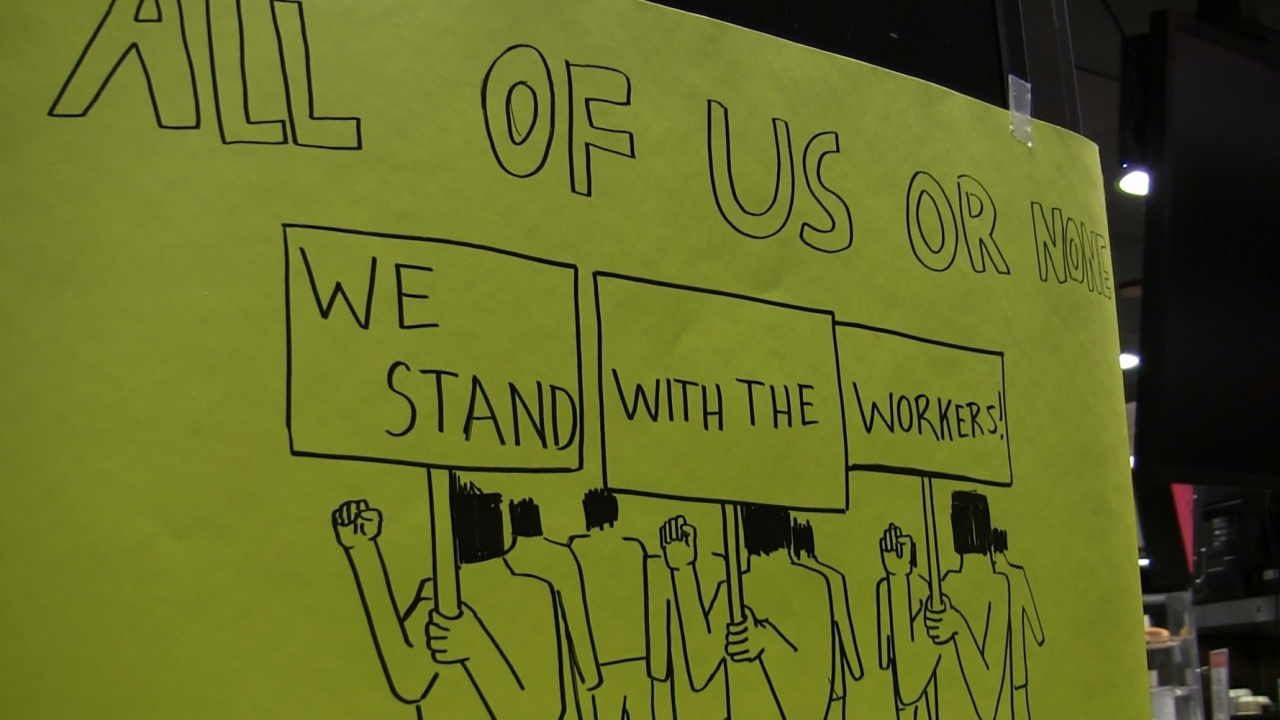 ALL OF US OR NONE
WE
STAND
WITH THE
WORKERS!